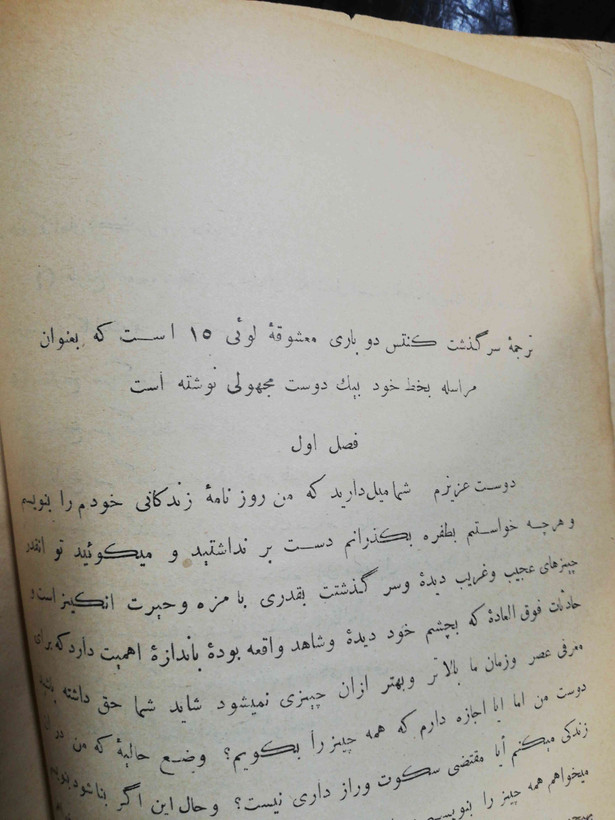 ترجمهٔ سرگذشت کنتس دو باری معشوقهٔ لوئی ۱۵ است که بعنوان
مراسله بخط خود بیك دوست مجهولی نوشته است
فصل اول
دوست عزیزم شما میل دارید که من روز نامهٔ زندگانی خودم را بنویسم
و هرچه خواستم بطفره بگذرانم دست بر نداشتید و میگوئید تو انقدر
چیزهای عجیب وغریب دیدهٔ وسر گذشتت بقدری با مزه وحیرت انگیز است و
حادثات فوق العادهٔ که بچشم خود دیدهٔ وشاهد واقعه بودهٔ باندازهٔ اهمیت دارد که برای
معرفی عصر وزمان ما بالاتر وبهتر ازان چیزی نمیشود شاید شما حق داشته
دوست من اما ایا اجازه دارم که همه چیز را بگویم؟ وضع حالیهٔ که من در
زندگی میکنم آیا مقتضی سکوت وراز داری نیست؟ وحال این اگر بنا شود
میخواهم همه چیز را